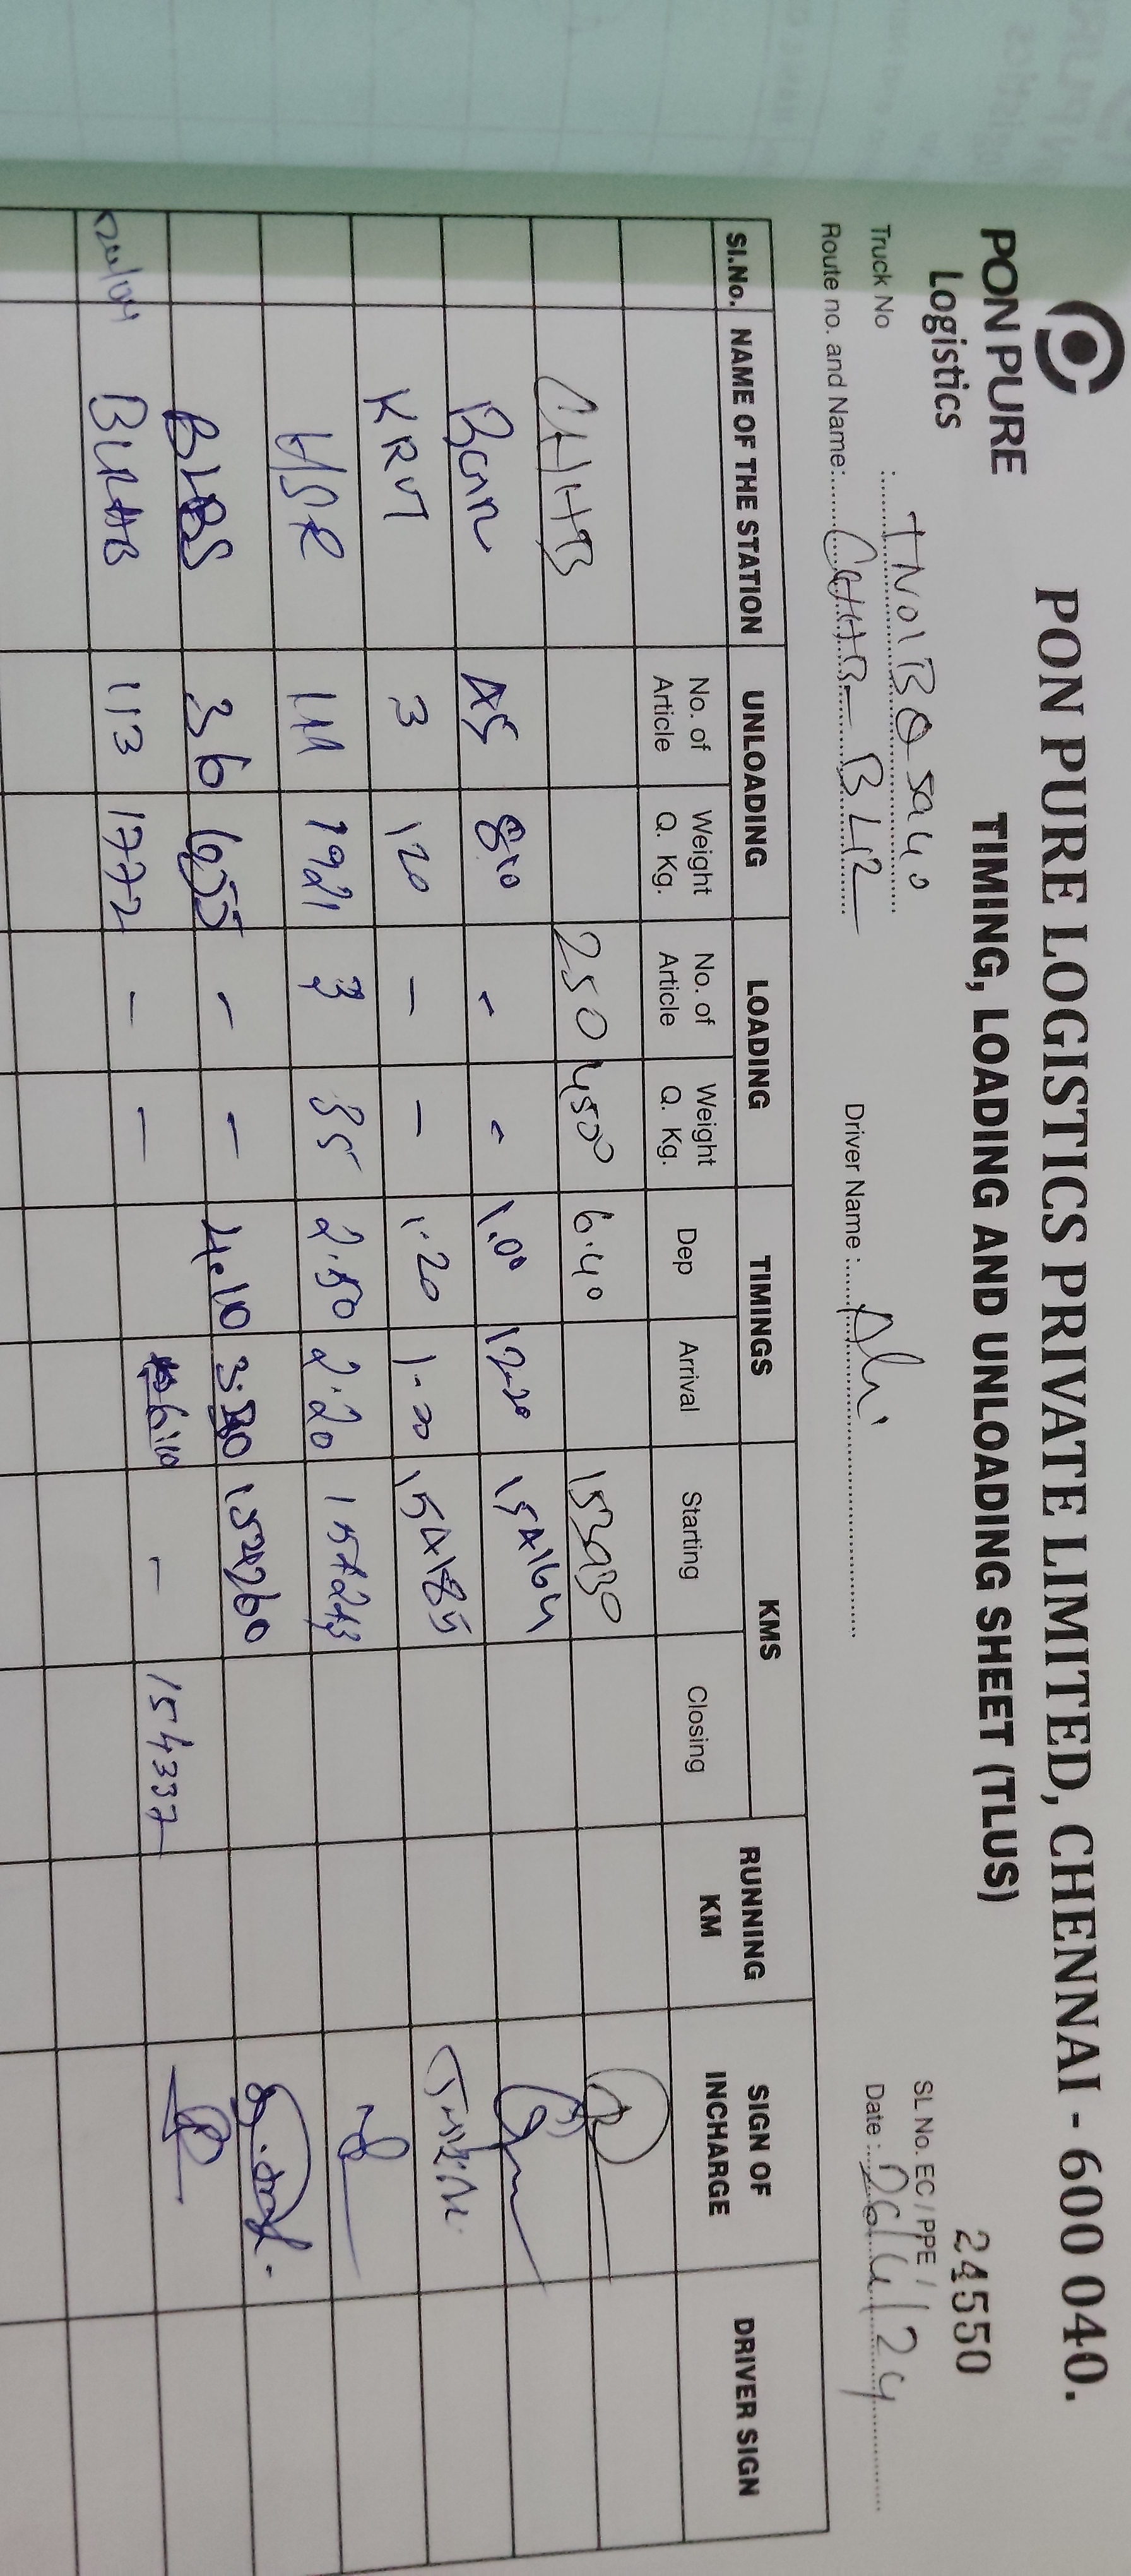 PON PURE LOGISTICS PRIVATE LIMITED, CHENNAI - 600 040.
PON PURE
Logistics
TIMING, LOADING AND UNLOADING SHEET (TLUS)
24550
SL No. EC / PPE /
Truck No :
Driver Name :
Date : 26/4/24
Route no. and Name: CHHB - BLR
Sl.No. NAME OF THE STATION UNLOADING LOADING TIMINGS KMS RUNNING KM SIGN OF INCHARGE DRIVER SIGN
No. of Article Weight Q. Kg. No. of Article Weight Q. Kg. Dep Arrival Starting Closing
CHHB 250 4500 6.40 153930
45 810 - - 1.00 12.20 154164
KRM 3 120 - - 1.20 154185
HSR 3 35 2.50 2.20 154243
36 655 - - 4.10 154260
BLRHB 113 1772 - - 6.10 - 154337